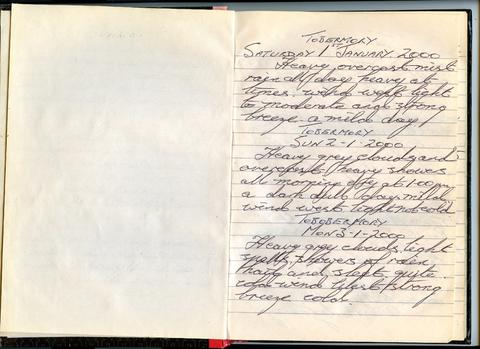 TOBERMORY
SATURDAY 1ST JANUARY. 2000
Heavy overcast mist
rain all day heavy at
times. wind west light
to moderate and strong
breeze. a mild day
TOBERMORY
SUN 2-1-2000
Heavy grey clouds and
overcast heavy showers
all morning dry at 1-00 pm
a dark dull day mild
wind west light not cold
TOBOBERMORY
MON 3-1-2000
Heavy grey clouds light
showers of rain
and sleet quite
cold wind West strong
breeze cold.